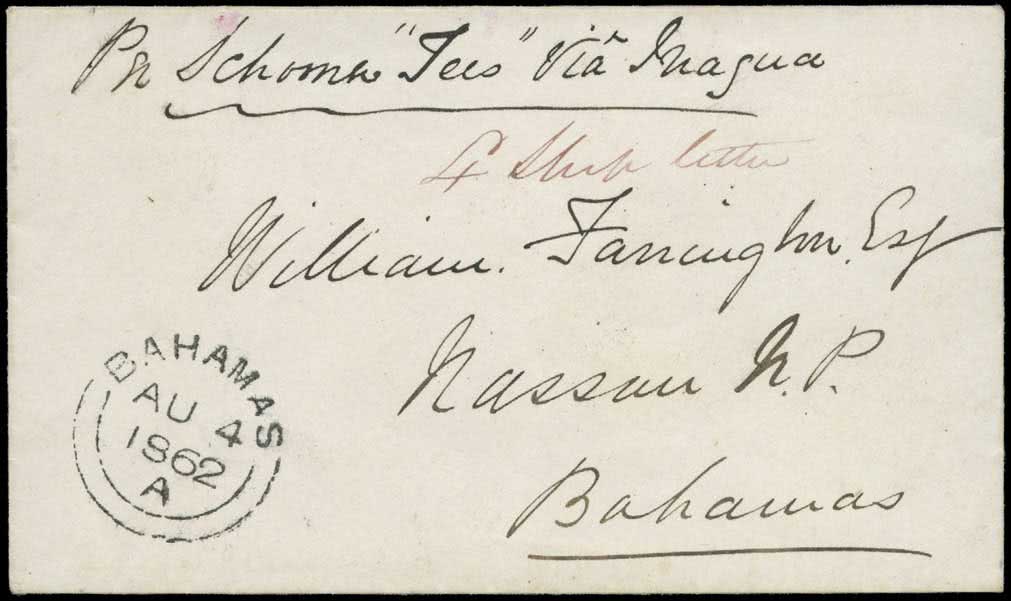 Pr Schoner "Tees" Viâ Inagua
4 Ship letter
William Farrington. Esq
Nassau N.P.
Bahamas
BAHAMAS
AU 4
1862
A